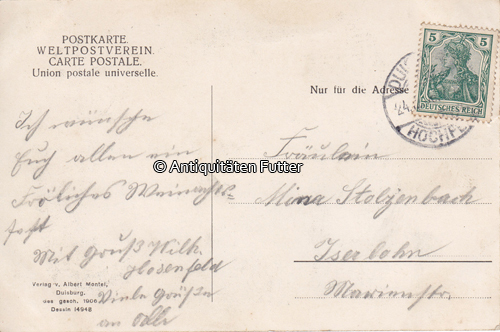 POSTKARTE.
WELTPOSTVEREIN.
CARTE POSTALE.
Union postale universelle.
Nur für die Adresse
5 5
DEUTSCHES REICH
DUIS
24.
HOCHF
Ich wünsche
Euch allen ein
Fröhliches Weinachts
fest
Mit Gruß Wilh.
Hosenfeld
Viele Grüße
an alle
© Antiquitäten Futter
Fräulein
Mina Stolzenbach
Iserlohn
Marienstr.
Verlag v. Albert Mentel,
Duisburg.
Ges. gesch. 1906
Dessin 14948